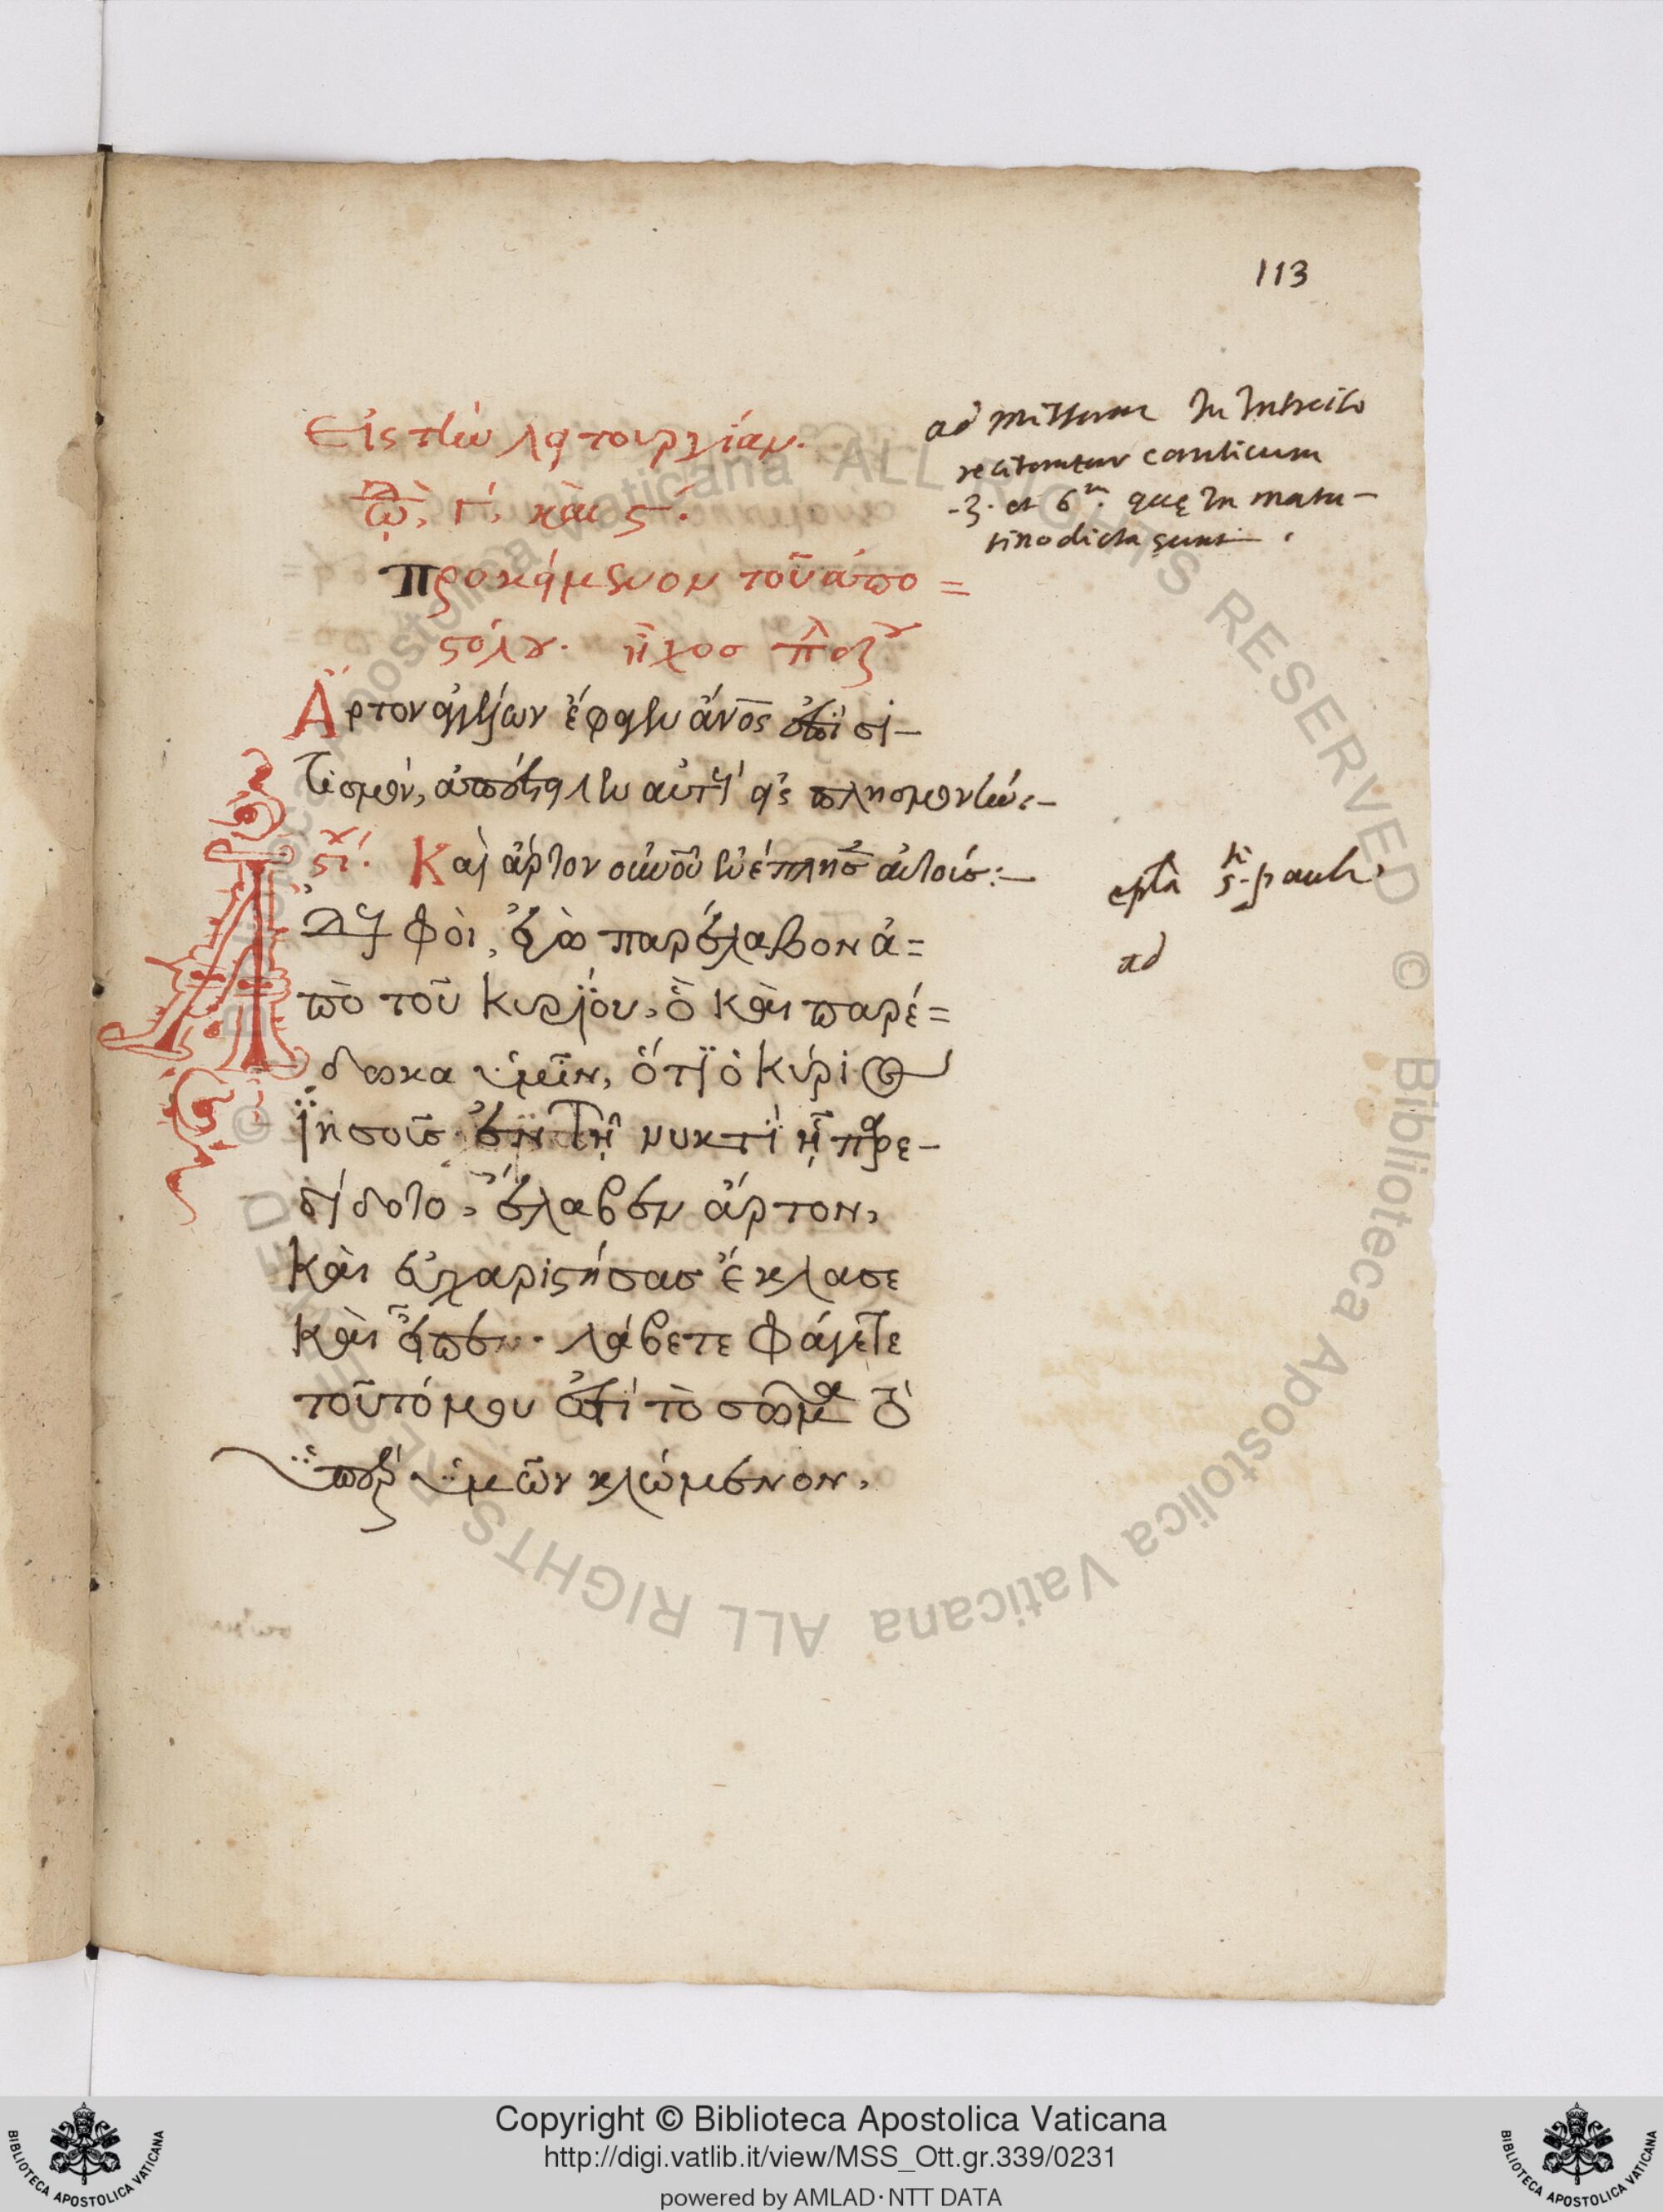 113
Εἰς τὴν λειτουργίαν.
ᾠδὴ, γ΄, καὶ ς΄.
Προκείμενον τοῦ ἀπο=
στόλου. ἦχος πλ
Ἄρτον ἀγγέλων ἔφαγεν ἄνος
τισμὸν, ἀπέστειλεν αὐτοῖς εἰς πλησμονήν:–
στί. Καὶ ἄρτον οὐνοῦ ἐνέπλησ αὐτούς:–
Ἀδελφοὶ, ἐγὼ παρέλαβον ἀ=
πὸ τοῦ Κυρίου, ὃ καὶ παρέ=
δωκα ὑμῖν, ὅτι ὁ Κύριος
Ἰησοῦς ἐν τῇ νυκτὶ ᾗ παρε–
δίδοτο, ἔλαβεν ἄρτον,
καὶ εὐχαριστήσας ἔκλασε
καὶ εἶπεν· λάβετε φάγετε
τοῦτό μου ἐστὶ τὸ σῶμα τὸ
ὑπὲρ ὑμῶν κλώμενον,
ad Missam In Introito
recitantur canticum
3. et 6. quę In matu–
tino dicta sunt.
epła s. pauli
ad
Copyright © Biblioteca Apostolica Vaticana
http://digi.vatlib.it/view/MSS_Ott.gr.339/0231
powered by AMLAD·NTT DATA
BIBLIOTECA APOSTOLICA VATICANA
BIBLIOTECA APOSTOLICA VATICANA
© Biblioteca Apostolica Vaticana ALL RIGHTS RESERVED
© Biblioteca Apostolica Vaticana ALL RIGHTS RESERVED